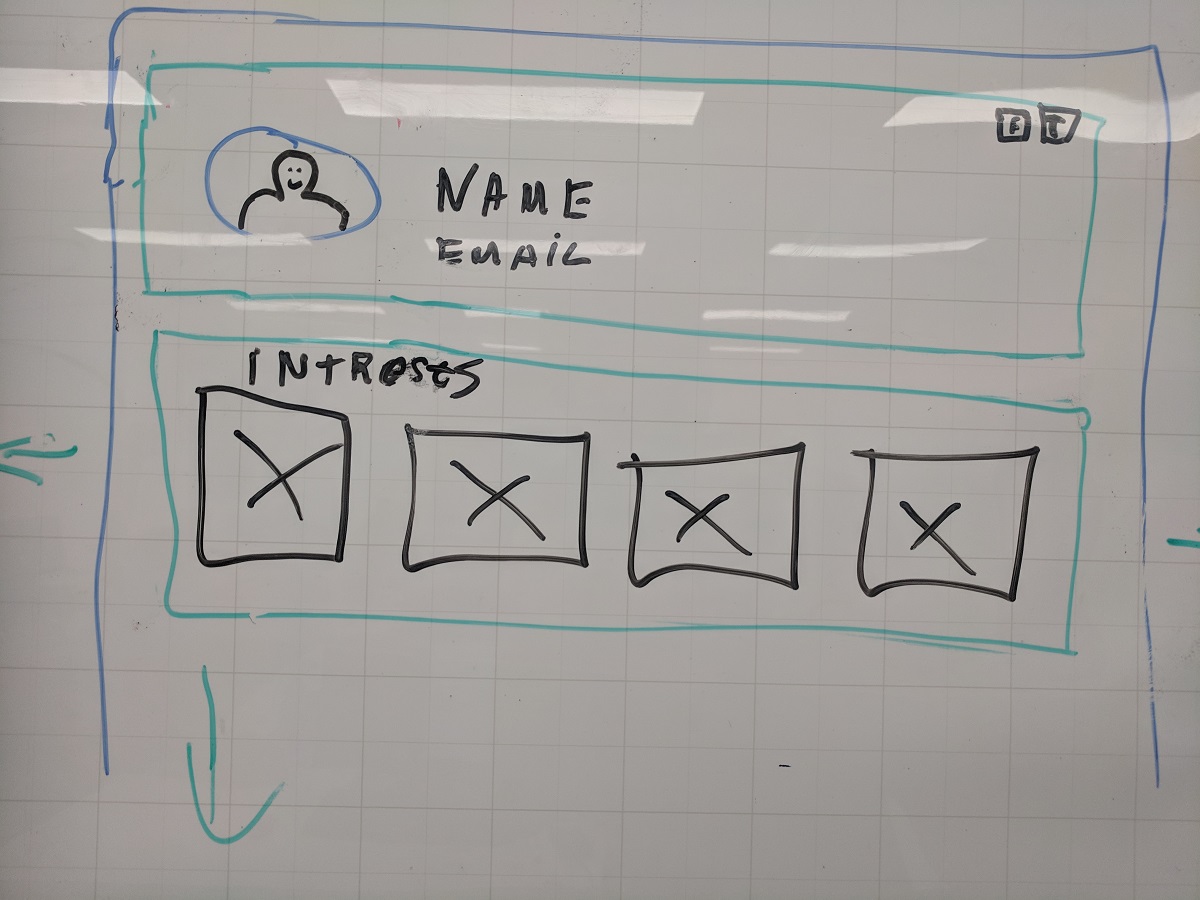 F
NAME
EMAiL
INtRests